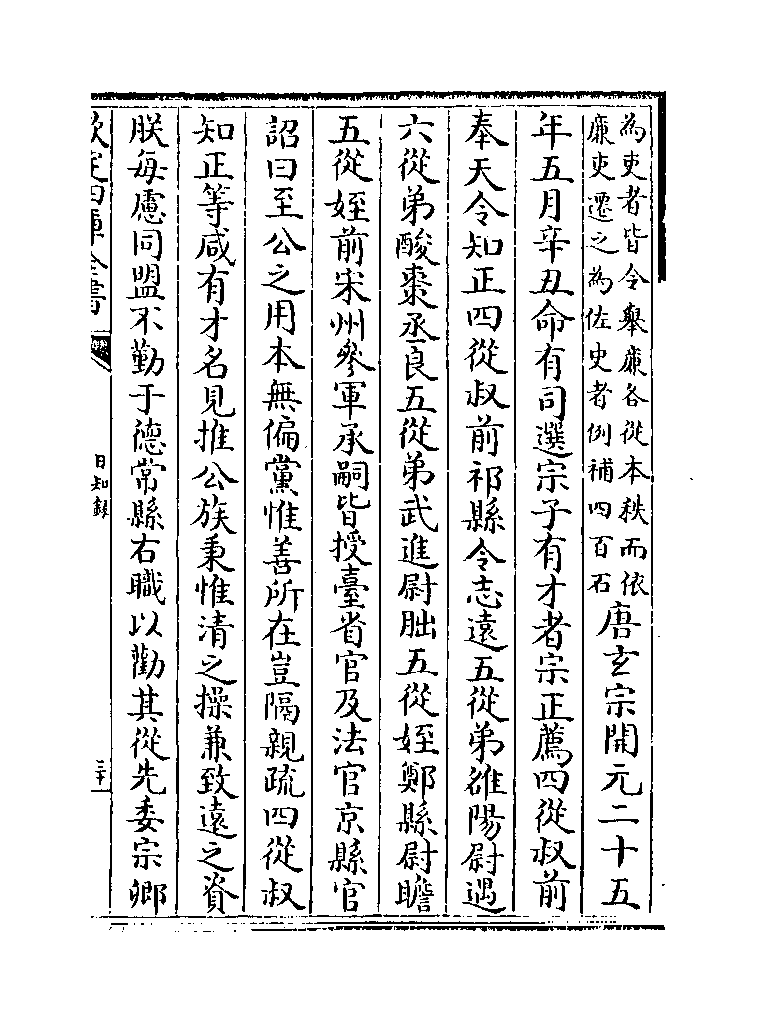 為吏者皆令舉廉各從本秩而依
廉吏遷之為佐史者例補四百石
唐玄宗開元二十五
年五月辛丑命有司選宗子有才者宗正薦四從叔前
奉天令知正四從叔前祁縣令志遠五從弟雒陽尉遇
六從弟酸棗丞良五從弟武進尉朏五從姪鄭縣尉瞻
五從姪前宋州參軍承嗣皆授臺省官及法官京縣官
詔曰至公之用本無偏黨惟善所在豈隔親疏四從叔
知正等咸有才名見推公族秉惟清之操兼致遠之資
朕每慮同盟不勤于德常縣右職以勸其從先委宗卿
欽定四庫全書
日知錄